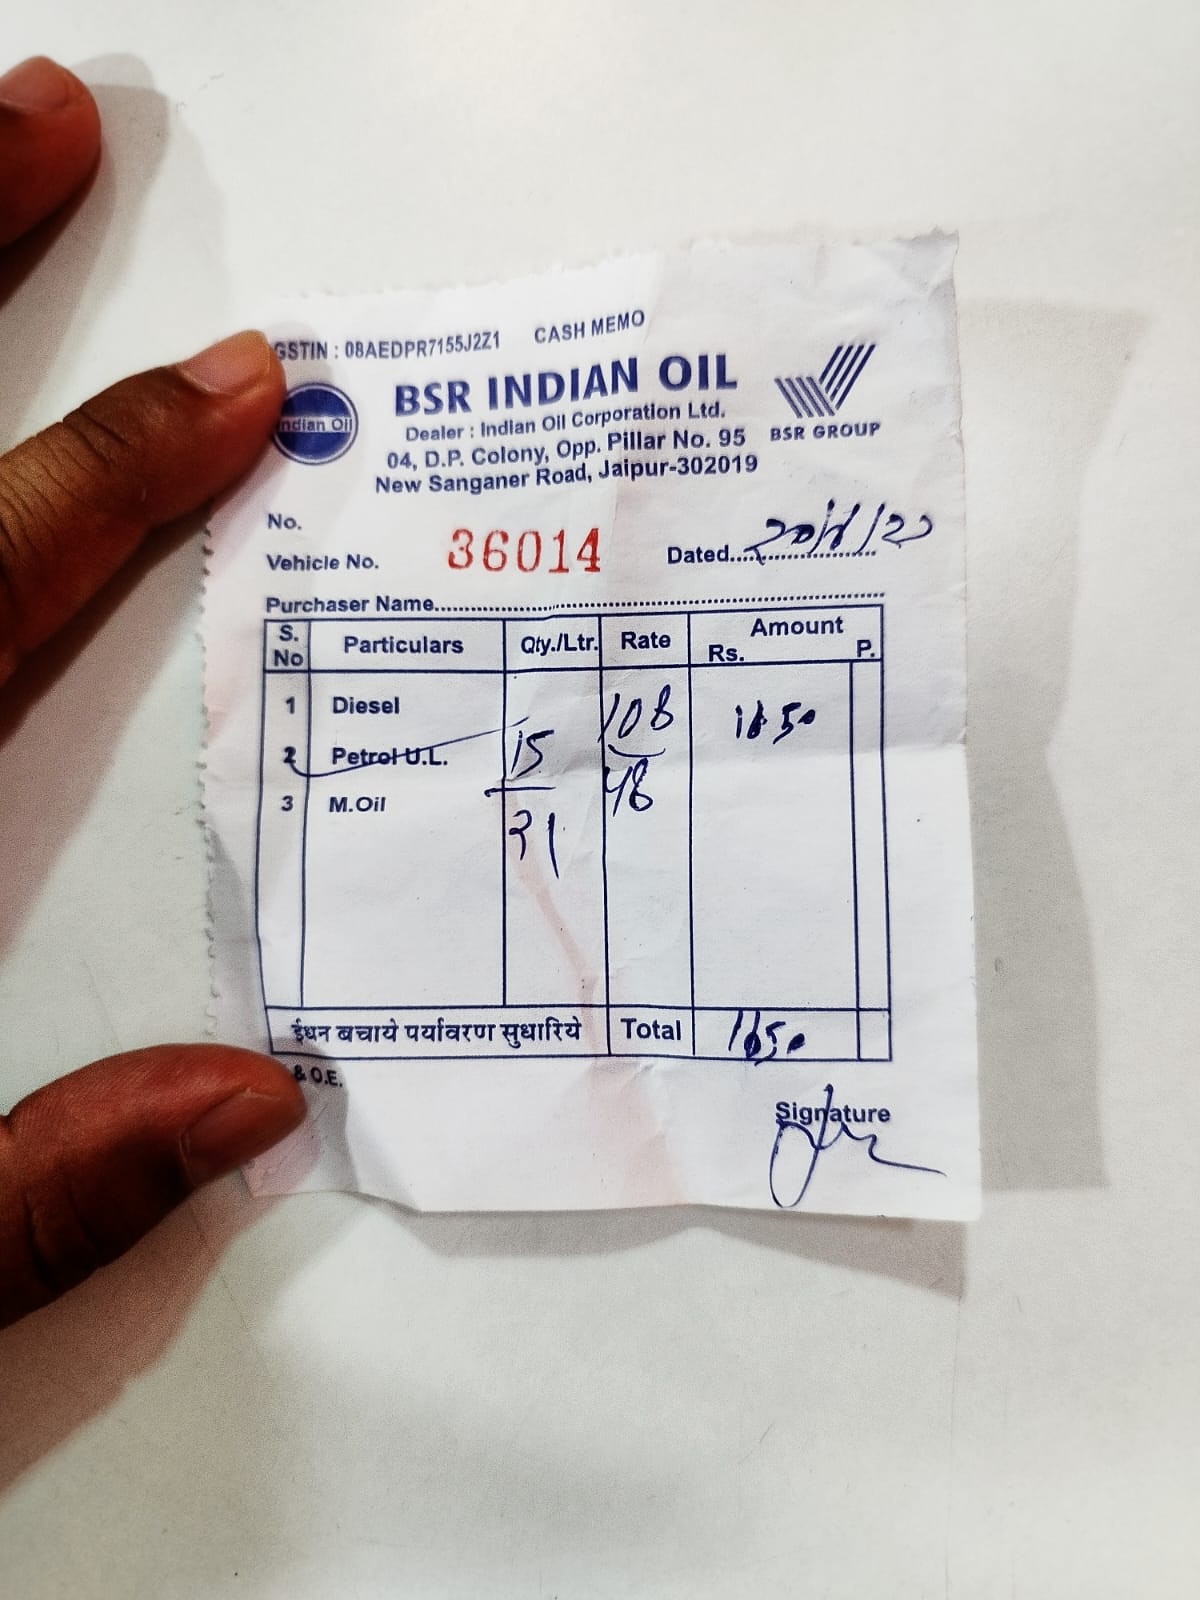 GSTIN : 08AEDPR7155J2Z1 CASH MEMO
BSR INDIAN OIL
Indian Oil
Dealer : Indian Oil Corporation Ltd.
BSR GROUP
04, D.P. Colony, Opp. Pillar No. 95
New Sanganer Road, Jaipur-302019
No.
36014
Vehicle No.
Dated....
Purchaser Name
S. No Particulars Qty./Ltr. Rate Amount Rs. P.
1 Diesel 108 1650
2 Petrol U.L. 15 48
3 M.Oil 21
ईंधन बचाये पर्यावरण सुधारिये Total 1650
& O.E.
Signature